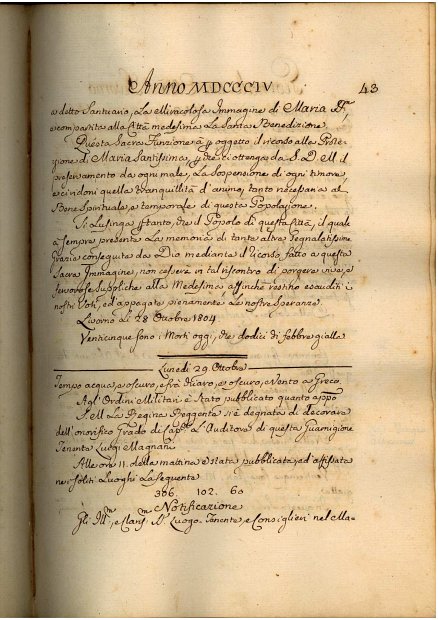 Anno MDCCCIV 43
a detto Santuario, a La Miracolosa Immagine di Maria SS.
a compartita alla Città medesima La Santa Benedizione.
Questa Sacra Funzione à p oggetto il ricorso alla Prote-
zione di Maria Santissima, p che ci ottenga da S. D. M. il
preservamento da ogni male, La sospensione di ogni timore,
e ci doni quella tranquillità d'animo, tanto necessaria al
Bene Spirituale, e temporale di questa Popolazione.
Si Lusinga ptanto, che il Popolo di questa Città, il quale
a sempre presente La memoria di tante altre segnalatissime
grazie conseguite da Dio mediante il ricorso fatto a questa
Sacra Immagine, non cessere in tal riscontro di porgere vive, e
fervorose suppliche alla Medesima affinchè restino esauditi i
nostri Voti, ed appagate pienamente Le nostre speranze.
Livorno Li 28 Ottobre 1804.
Venticinque sono i Morti oggi, che dodici di febbre gialla
Lunedì 29. Ottobre
Tempo acqua, e oscuro, e frà chiaro, e oscuro, e Vento a Greco
Agl'Ordini Militari è stato pubblicato quanto appo
S. M. La Regina Reggente si è degnata di decorare
dell'onorifico Grado di Cap. L'Auditore di questa Guarnigione
Tenente Luigi Magnani
Alle ore 11. della mattina è stata pubblicata, ed affissata
ne soliti Luoghi La seguente
306. 102. 60
Notificazione
Gli Ill. e Claris. SS. Luogo-Tenente, e Consiglieri nel Ma-